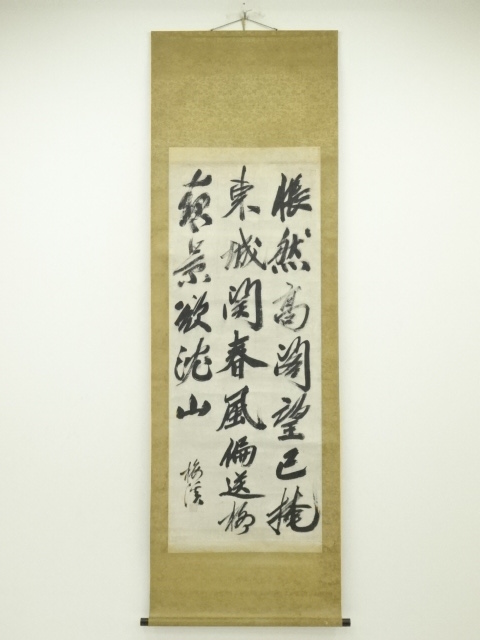 悵然高閣望已掩
東城関春風偏送柳
夜景欲沈山
梅溪